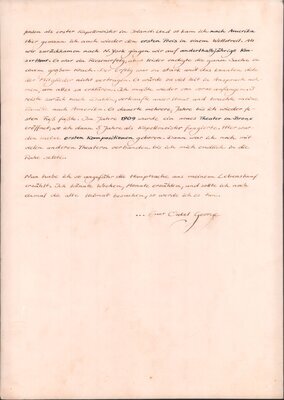 polen als erster Kapellmeister in Irland. Und so kam ich nach Amerika
Hier gewann ich auch wieder den ersten Preis in einem Wettstreit. Als
wir zurückkamen nach N. York gingen wir auf anderthalbjährige Kon-
zert-tour. Es war ein Riesenerfolg aber leider endigte die ganze Sache in
einem großen Krach. Der Erfolg war zu stark und das konnten die
der Mitglieder nicht vertragen. Es würde zu viel Zeit in Anspruch neh-
men, um alles zu erklären. Ich mußte wieder von vorn anfangen. Ich
reiste zurück nach verkaufte unser Haus und brachte meine
Familie nach Amerika. Es dauerte mehrere Jahre bis ich wieder fe-
sten Fuß faßte. Im Jahre 1909 wurde ein neues Theater in Bronx
eröffnet, wo ich dann 5 Jahre als Kapellmeister fungierte. Hier wur-
den meine ersten Kompositionen geboren. Dann war ich noch mit
vielen anderen Theatern verbunden bis ich mich endlich in die
Ruhe setzte.
Nun habe ich so ungefähr die Hauptsache aus meinem Lebenslauf
erzählt. Ich könnte Wochen, Monate erzählen, und sollte ich noch
einmal die alte Heimat besuchen, so werde ich es tun.
... Euer Onkel Georg